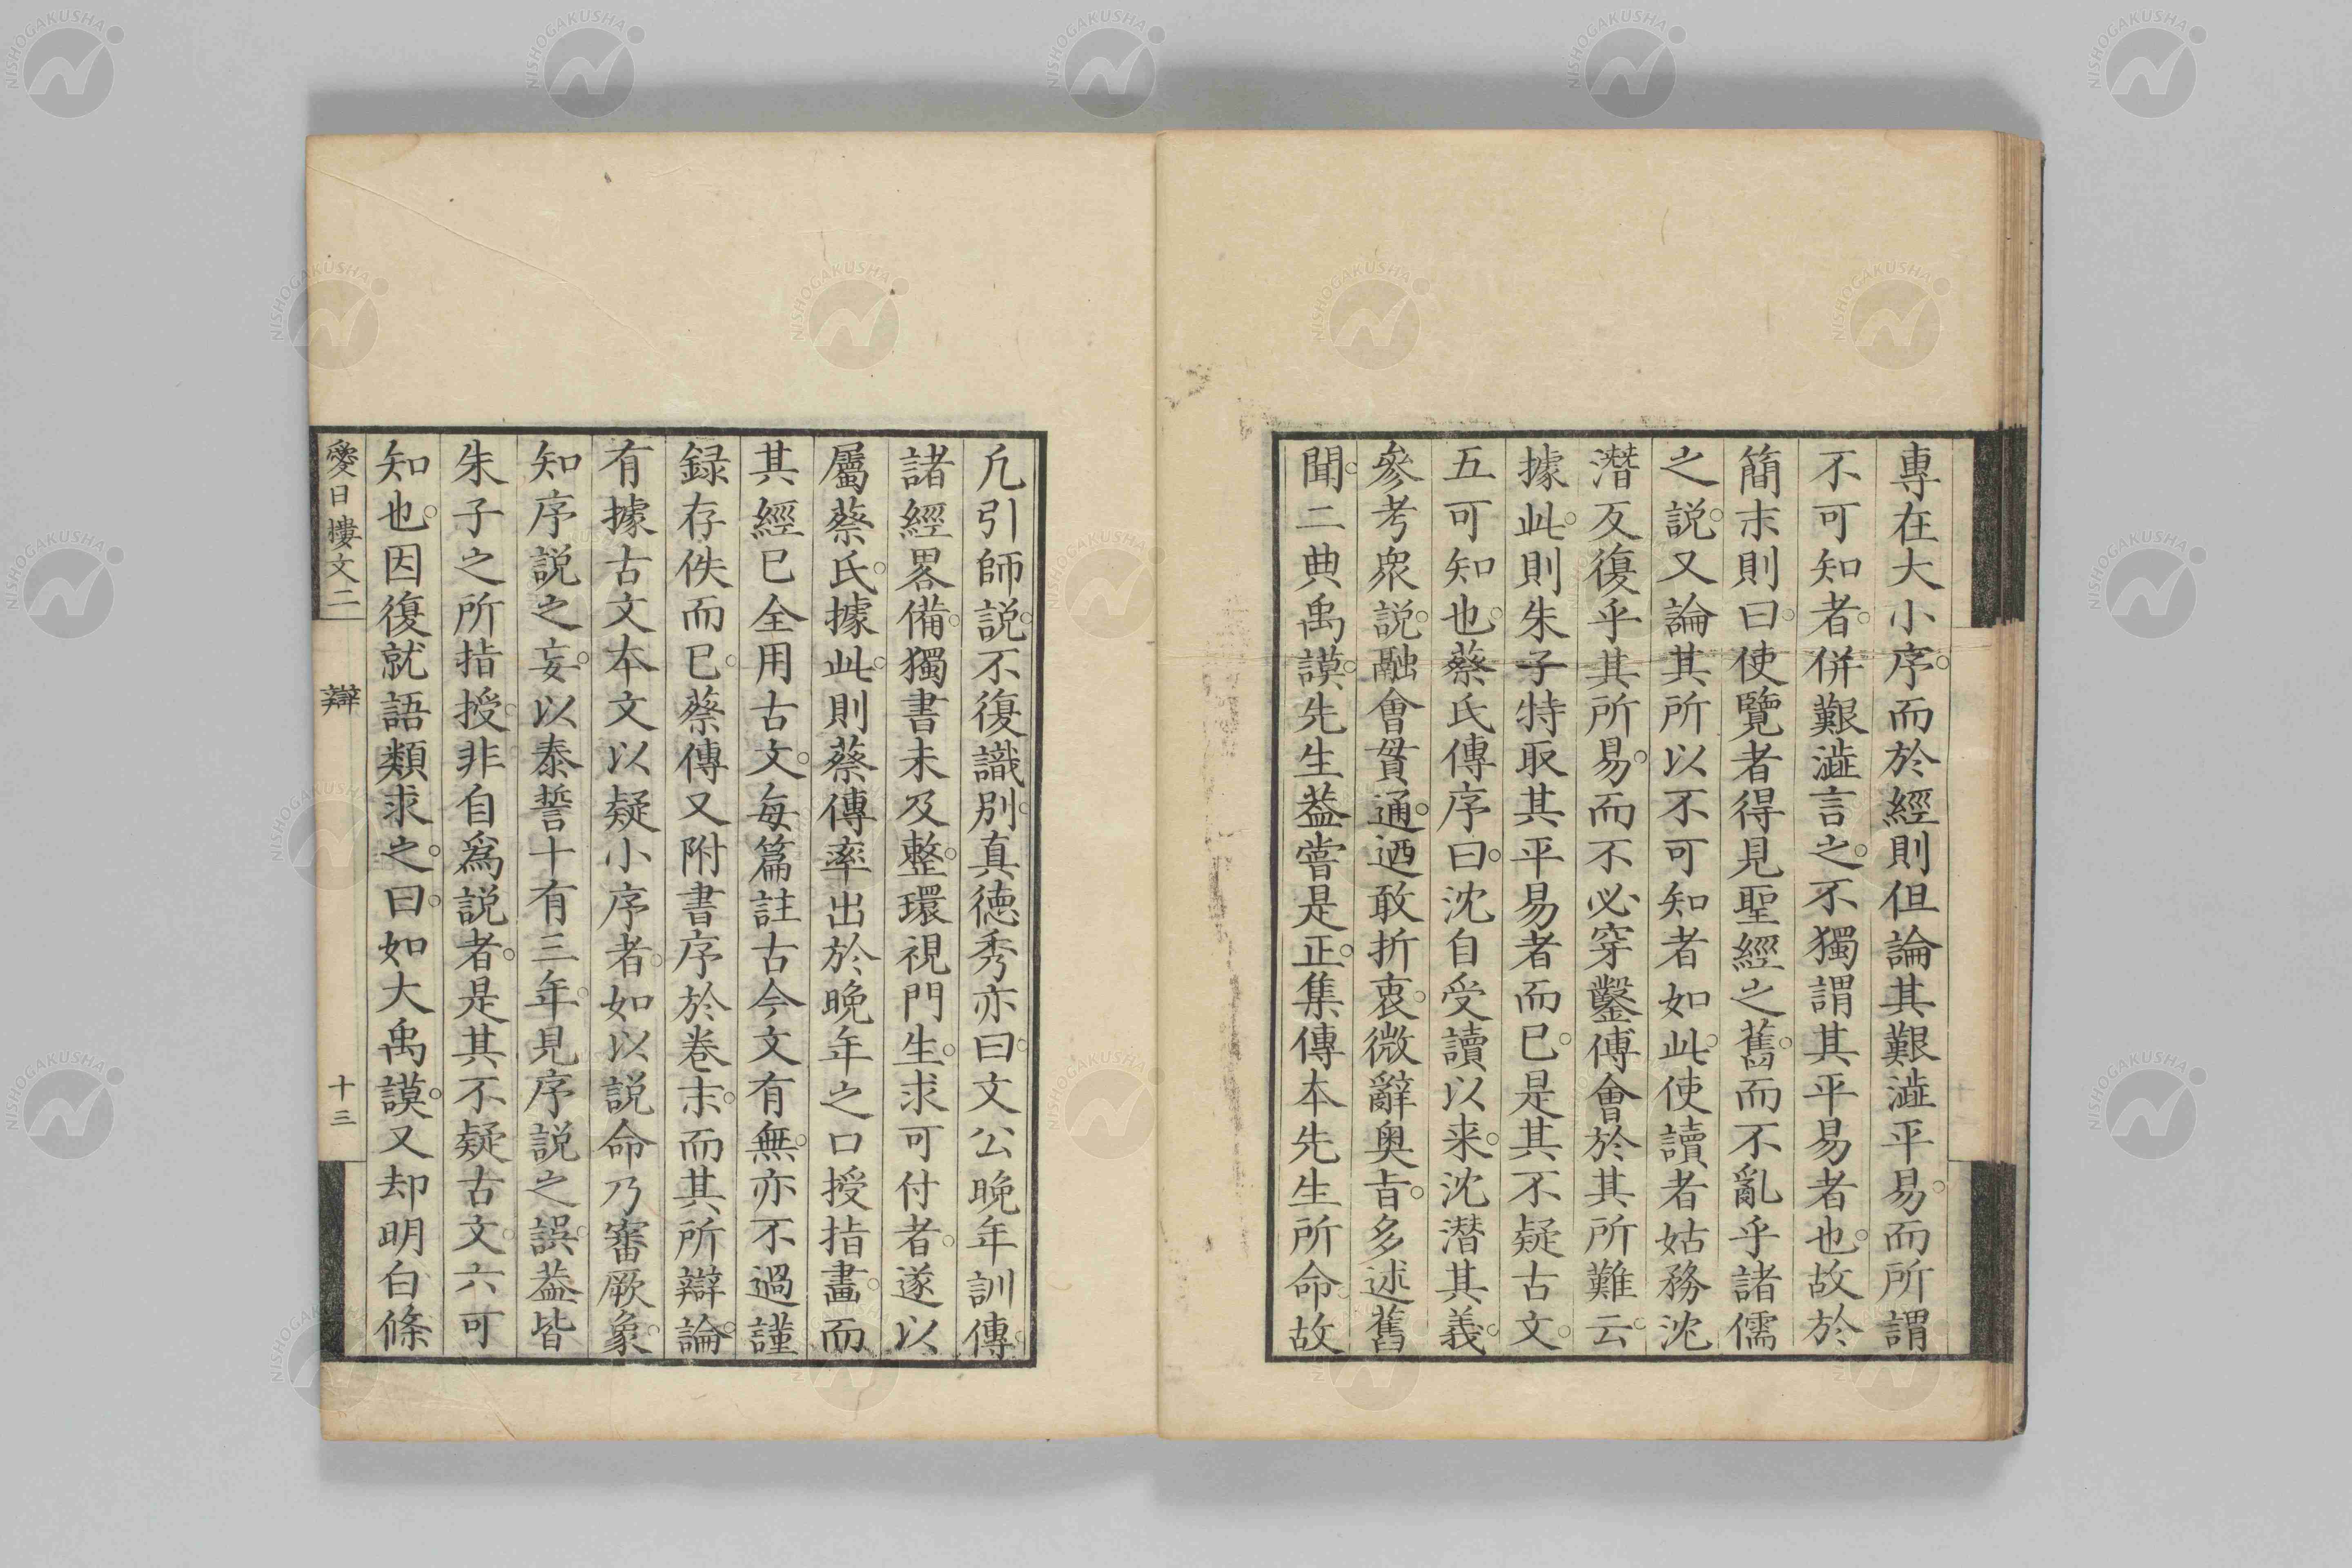 專在大小序。而於經則但論其艱澁平易。而所謂
不可知者。併艱澁言之。不獨謂其平易者也。故於
簡末則曰。使覽者得見聖經之舊。而不亂乎諸儒
之説。又論其所以不可知者如此。使讀者姑務沈
潛反復乎其所易。而不必穿鑿傅會於其所難云。
據此。則朱子特取其平易者而已。是其不疑古文。
五可知也。蔡氏傳序曰。沈自受讀以来。沈潛其義。
參考衆説。融會貫通。迺敢折衷。微辭奥旨。多述舊
聞。二典禹謨。先生葢嘗是正。集傳本先生所命。故
凢引師説。不復識別。真徳秀亦曰。文公晩年訓傳。
諸經畧備。獨書未及整。環視門生。求可付者。遂以
屬蔡氏。據此。則蔡傳率出於晩年之口授指畫。而
其經已全用古文。毎篇註古今文有無。亦不過謹
録存佚而已。蔡傳又附書序於巻末。而其所辯論。
有據古文本文以疑小序者。如以説命乃審厥象。
知序説之妄。以泰誓十有三年。見序説之誤。葢皆
朱子之所指授。非自爲説者。是其不疑古文。六可
知也。因復就語類求之。曰。如大禹謨。又却明白條
愛日樓文二 辯 十三
NISHOGAKUSHA